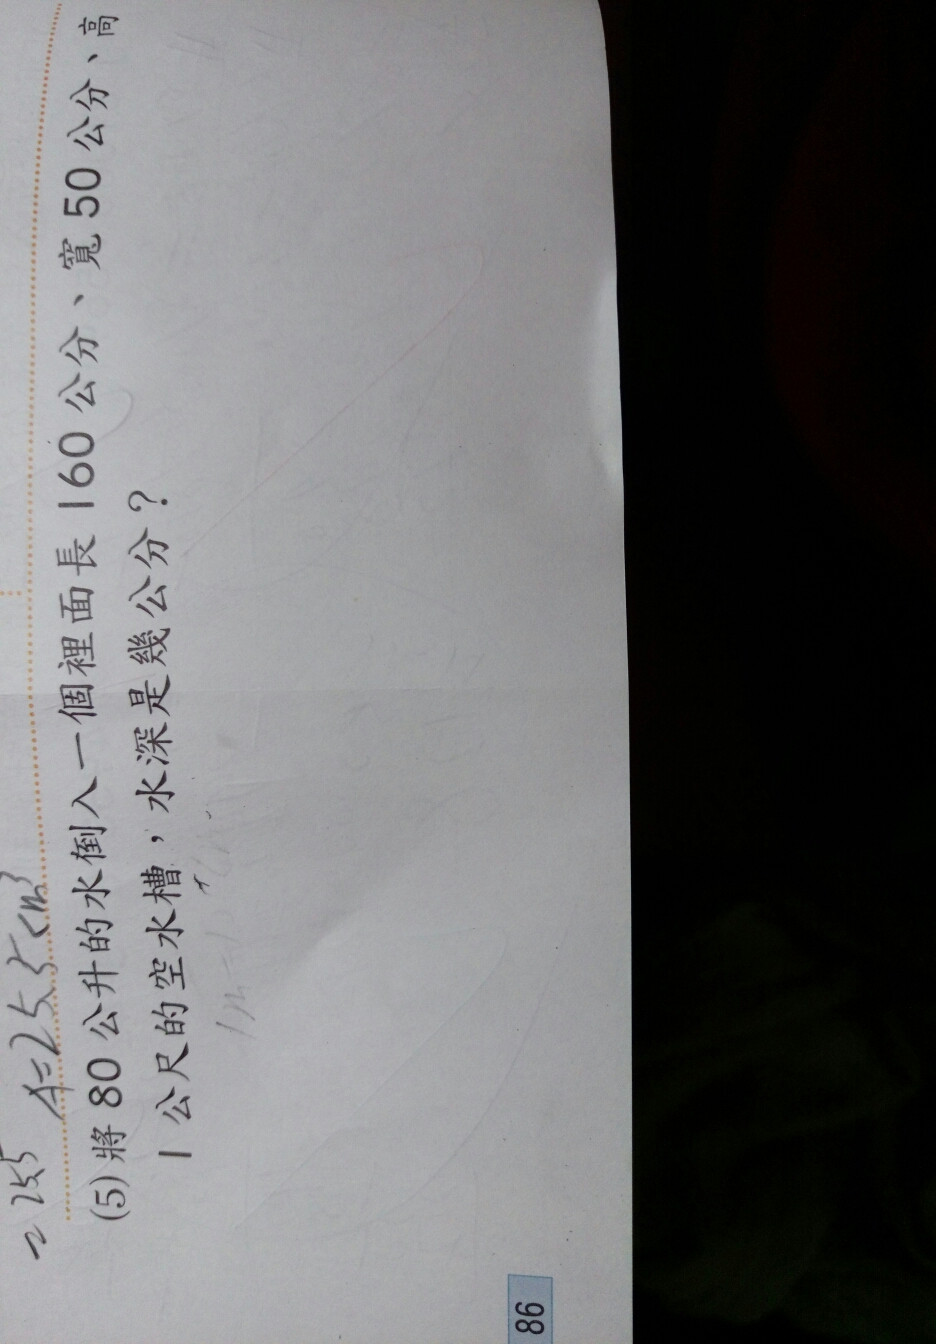 = 255 A=255cm³
(5) 將 80 公升的水倒入一個裡面長 160 公分、寬 50 公分、高
1 公尺的空水槽，水深是幾公分？
1m=1
86